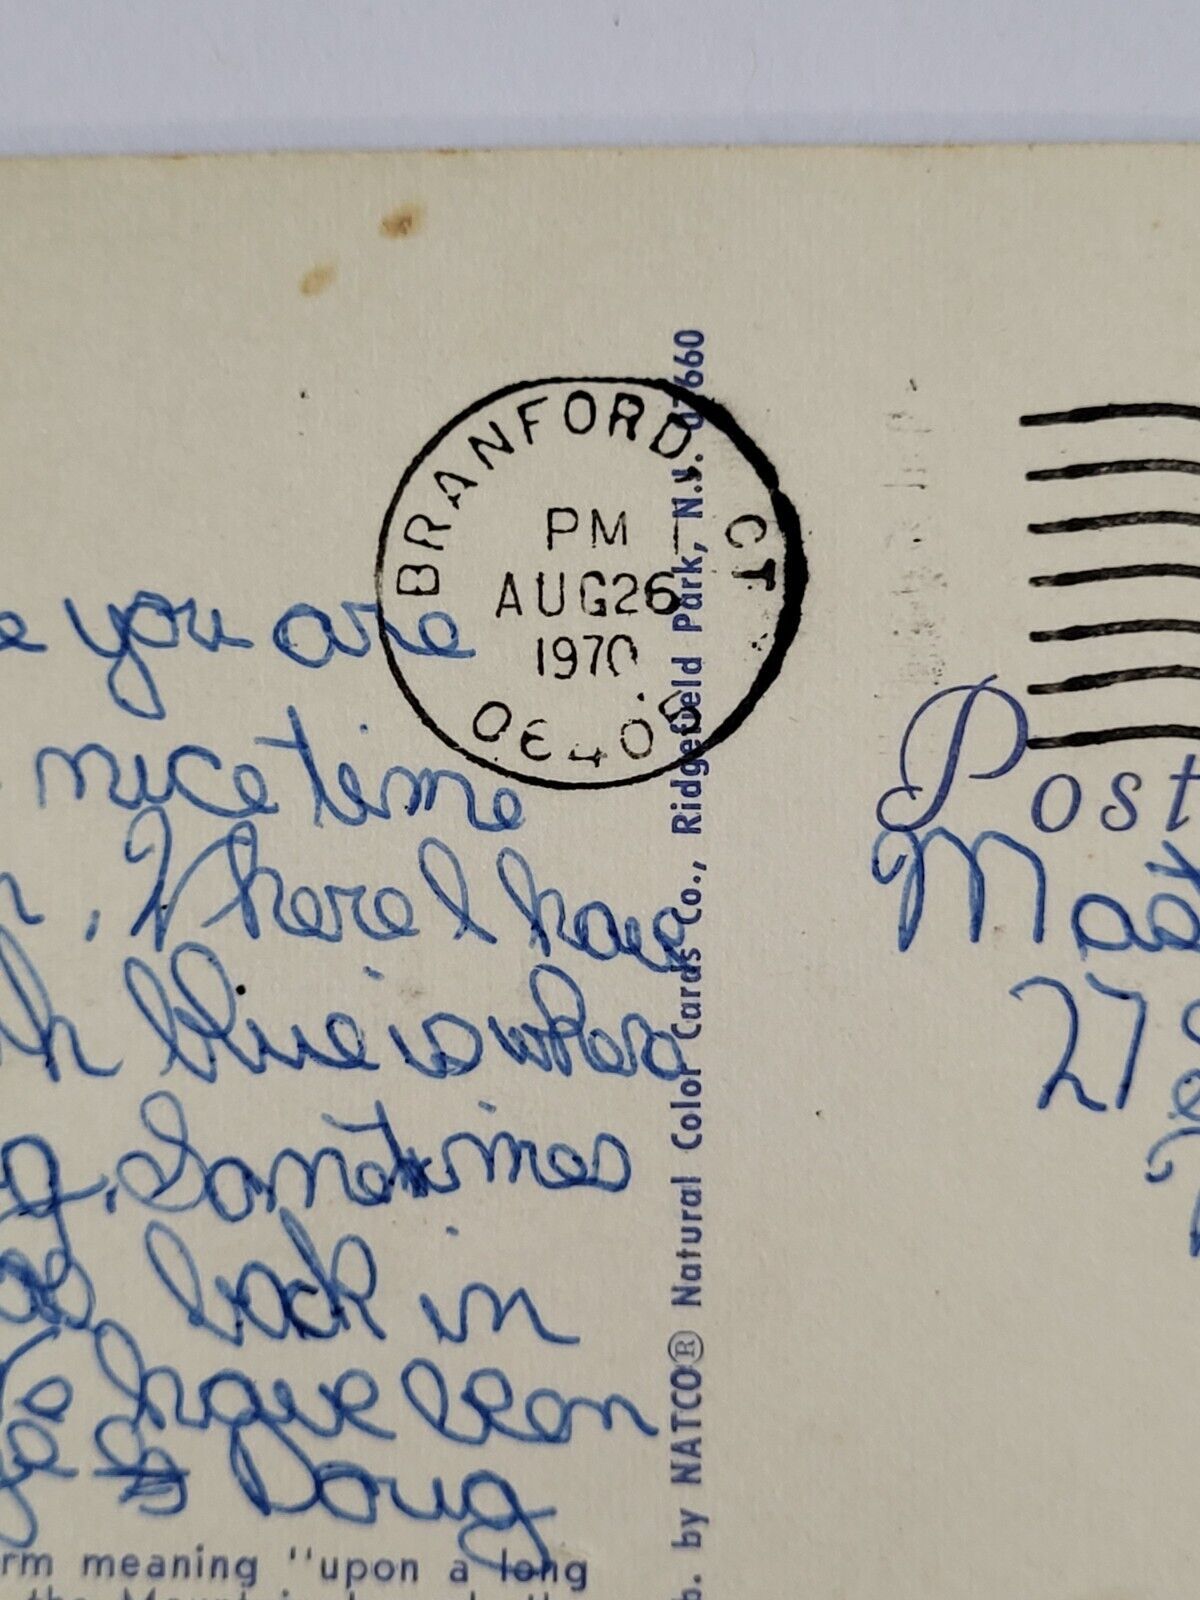 BRANFORD, CT
PM
AUG 26
1970
you are
nice time
. Where I have
blue is where
. Sometimes
back in
have been
Doug
meaning "upon a long
b. by NATCO® Natural Color Cards Co., Ridgefield Park, N.J. 07660
Post
27